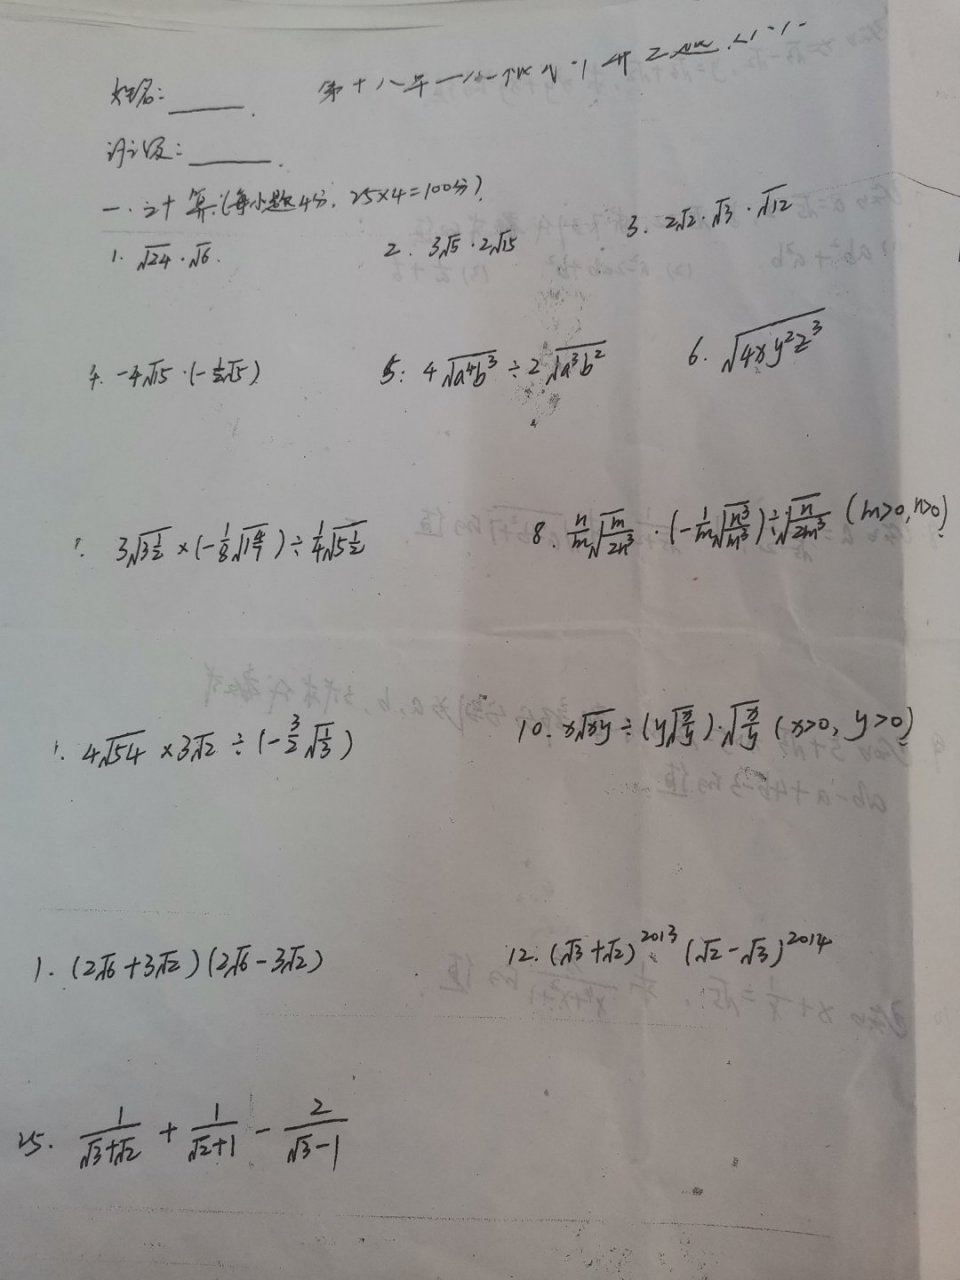 姓名: ______.
班级: ______.
一. 计算(每小题4分, 25×4=100分)
1. √24·√6. 2. 3√5·2√15 3. 2√2·√3·√12
4. -4√15·(-½√5) 5: 4√(a⁴b³)÷2√(a³b²) 6. √(4xy²z³)
3√(3½)×(-⅛√)÷¼√(5½) 8. n/m√(m/2n³)·(-1/m√(n³/m³))÷√(n/2m³) (m>0, n>0)
4√54×3√2÷(-3/2√(1/3)) 10. x√(xy)÷(y√(x/y))·√(x/y) (x>0, y>0)
1. (2√6+3√2)(2√6-3√2) 12. (√3+√2)²⁰¹³(√2-√3)²⁰¹⁴
25. 1/(√3+√2) + 1/(√2+1) - 2/(√3-1)